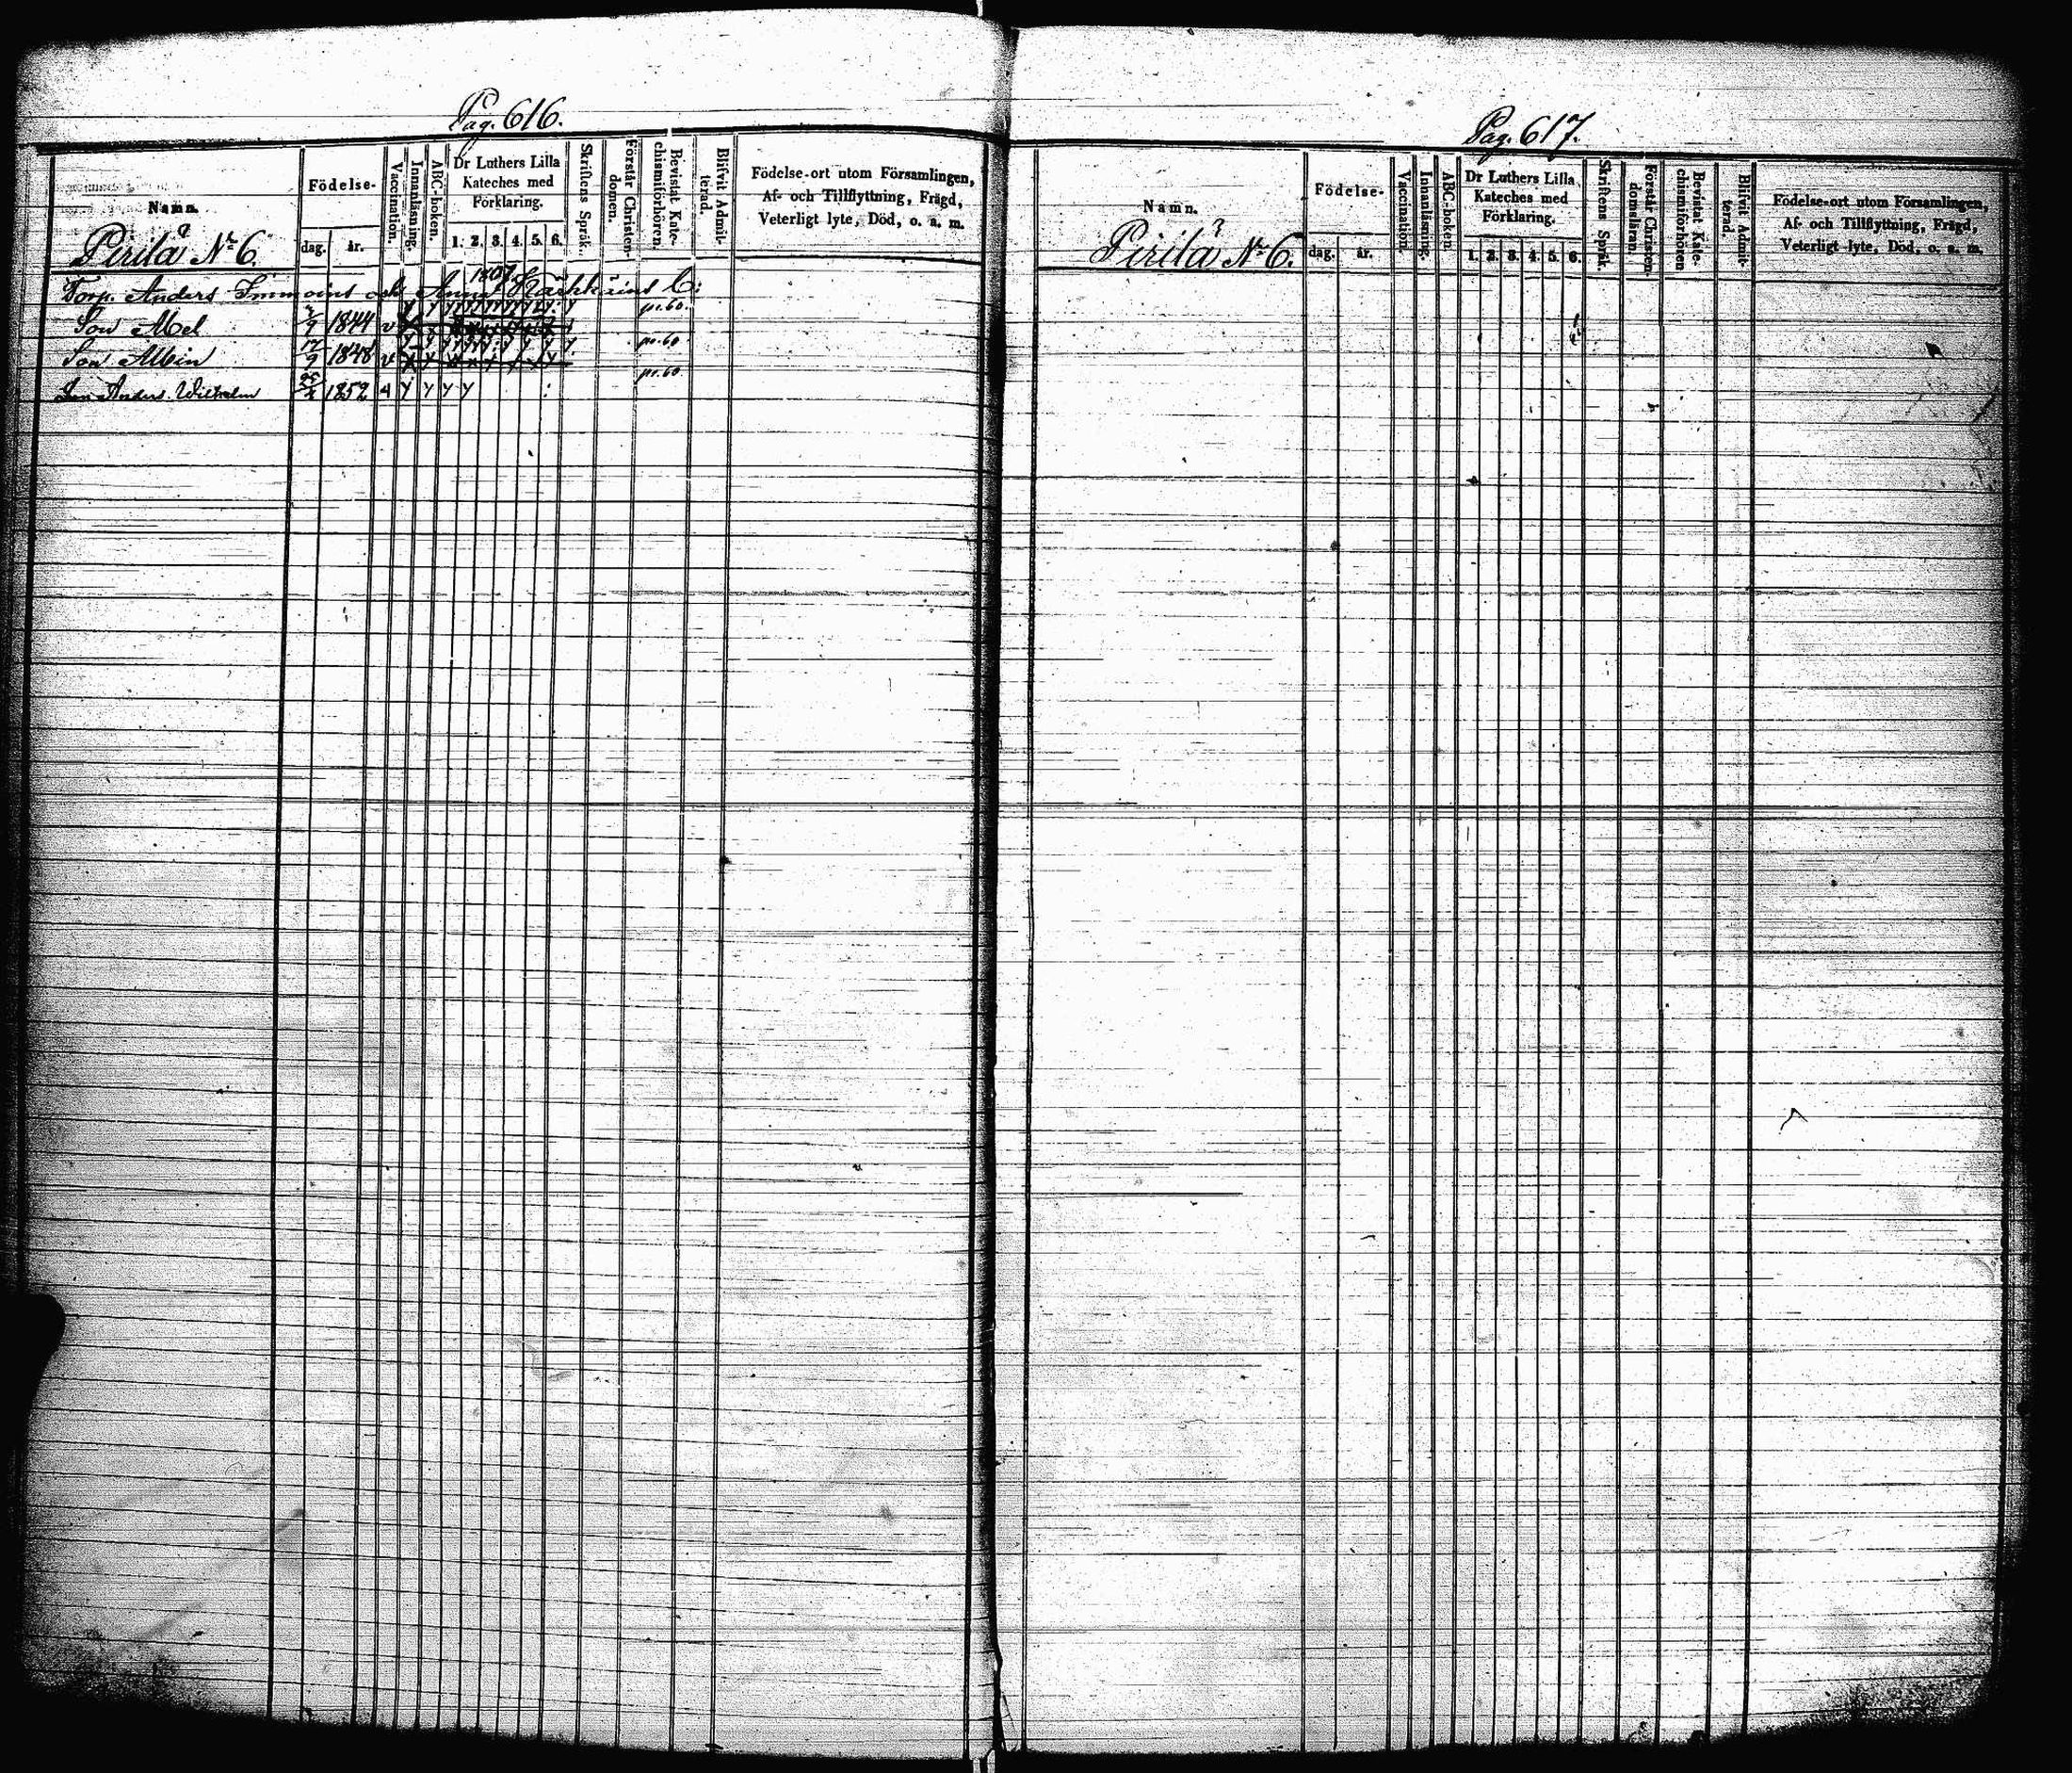 Pag. 616.
Namn.
Födelse-
dag.
år.
Vaccination.
Innanläsning.
ABC-boken.
Dr Luthers Lilla
Kateches med
Förklaring.
1. 2. 3. 4. 5. 6.
Skriftens Språk.
Förstår Christen-
domen.
Bevistat Kate-
chismiförhören.
Blifvit Admit-
terad.
Födelse-ort utom Församlingen,
Af- och Tillflyttning, Frägd,
Veterligt lyte, Död, o. a. m.
Pirilä № 6.
Torp. Anders Immoins och Anna Kärkkäins C:
Son 1844 v y y y y y y y y y pr. 60.
Son Albin 17/9 1848 v pr. 60
Son Anders Wilhelm 1852 y y y y pr. 60
Pag. 617.
Namn.
Födelse-
dag.
år.
Vaccination.
Innanläsning.
ABC-boken.
Dr Luthers Lilla
Kateches med
Förklaring.
1. 2. 3. 4. 5. 6.
Skriftens Språk.
Förstår Christen-
domsläran.
Bevistat Kate-
chismiförhören
Blifvit Admit-
terad.
Födelse-ort utom Församlingen,
Af- och Tillflyttning, Frägd,
Veterligt lyte, Död, o. a. m.
Pirilä № 6.